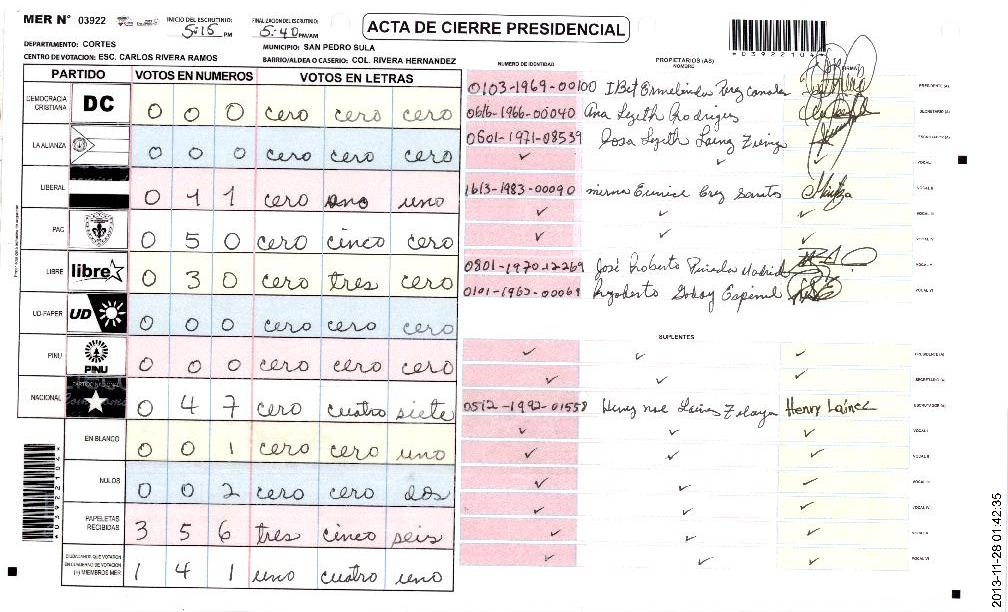 MER N° 03922
INICIO DEL ESCRUTINIO: 5:15 PM
FINALIZACION DEL ESCRUTINIO: 5:40 PM/AM
ACTA DE CIERRE PRESIDENCIAL
DEPARTAMENTO: CORTES
MUNICIPIO: SAN PEDRO SULA
CENTRO DE VOTACION: ESC. CARLOS RIVERA RAMOS
BARRIO/ALDEA O CASERIO: COL. RIVERA HERNANDEZ
*03922104*
PARTIDO VOTOS EN NUMEROS VOTOS EN LETRAS
DEMOCRACIA CRISTIANA DC 0 0 0 cero cero cero
LA ALIANZA 0 0 0 cero cero cero
LIBERAL 0 1 1 cero uno uno
PAC 0 5 0 cero cinco cero
LIBRE libre 0 3 0 cero tres cero
UD-FAPER UD 0 0 0 cero cero cero
PINU PINU 0 0 0 cero cero cero
NACIONAL 0 4 7 cero cuatro siete
EN BLANCO 0 0 1 cero cero uno
NULOS 0 0 2 cero cero dos
PAPELETAS RECIBIDAS 3 5 6 tres cinco seis
CIUDADANOS QUE VOTARON EN CUADERNO DE VOTACION (+) MIEMBROS MER 1 4 1 uno cuatro uno
*03922104*
NUMERO DE IDENTIDAD PROPIETARIOS (AS) NOMBRE
0103-1969-00100 PRESIDENTE (A)
0616-1966-00040 Ana Lizeth Rodrigez SECRETARIO (A)
0501-1971-08539 Rosa Lizeth Lainez ESCRUTADOR (A)
VOCAL I
1613-1983-00090 mirna Eunice Cruz Santos VOCAL II
VOCAL III
VOCAL IV
0801-1970-12269 José Roberto Pineda Madrid VOCAL V
Rigoberto Godoy VOCAL VI
SUPLENTES
PRESIDENTE (A)
SECRETARIO (A)
0512-1992-01558 Henry Noe Lainez Zelaya Henry Laínez ESCRUTADOR (A)
VOCAL I
VOCAL II
VOCAL III
VOCAL IV
VOCAL V
VOCAL VI
2013-11-28 01:42:35